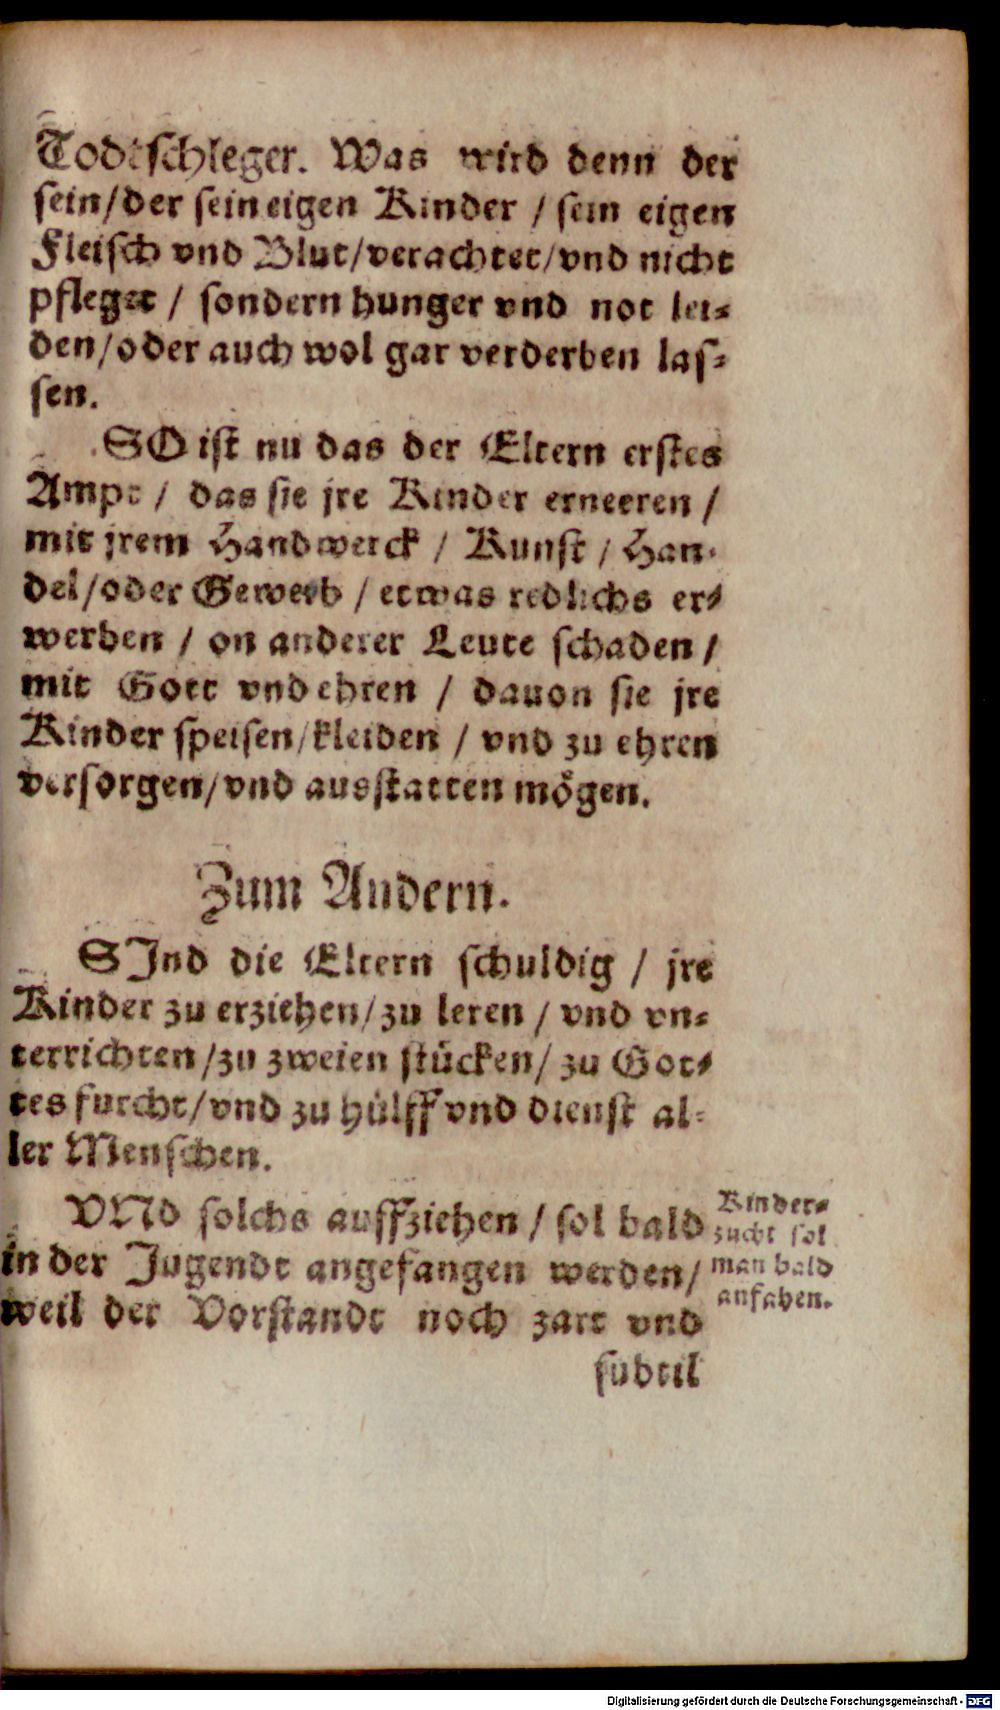 Todtschleger. Was wird denn der
sein/der sein eigen Kinder / sein eigen
Fleisch vnd Blut/verachtet/vnd nicht
pfleget / sondern hunger vnd not lei-
den/oder auch wol gar verderben las-
sen.
SO ist nu das der Eltern erstes
Ampt / das sie jre Kinder erneeren /
mit jrem Handwerck / Kunst / Han-
del/oder Gewerb / etwas redlichs er-
werben / on anderer Leute schaden /
mit Gott vnd ehren / dauon sie jre
Kinder speisen/kleiden / vnd zu ehren
versorgen/vnd ausstatten mögen.
Zum Andern.
SInd die Eltern schuldig / jre
Kinder zu erziehen/zu leren / vnd vn-
terrichten/zu zweien stücken/ zu Got-
tes furcht/vnd zu hülff vnd dienst al-
ler Menschen.
VNd solchs auffziehen / sol bald
in der Jugendt angefangen werden/
weil der Vorstandt noch zart vnd
subtil
Kinder-
zucht sol
man bald
anfahen.
Digitalisierung gefördert durch die Deutsche Forschungsgemeinschaft - DFG